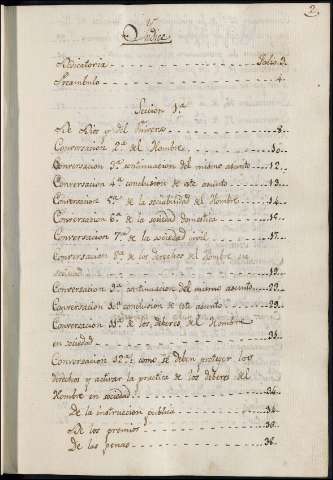 2.
Yndice
Dedicatoria Folio 3.
Preambulo 4.
Seccion 1.ª
De Dios y del Universo 8.
Conversacion 2.ª del Hombre 10.
Conversacion 3.ª continuacion del mismo asunto 12.
Conversacion 4.ª conclusion de este asunto 13.
Conversacion 5.ª de la sociabilidad del Hombre 14.
Conversacion 6.ª de la sociedad domestica 15.
Conversacion 7.ª de la sociedad civil 17.
Conversacion 8.ª de los derechos del Hombre en
sociedad 19.
Conversacion 9.ª continuacion del mismo asunto 22.
Conversacion 10.ª conclusion de este asunto 29.
Conversacion 11.ª de los deberes del Hombre
en sociedad 31.
Conversacion 12.ª como se deben proteger los
derechos y activar la practica de los deberes del
Hombre en sociedad 34.
De la instruccion publica 34.
De los premios 35.
De las penas 36.